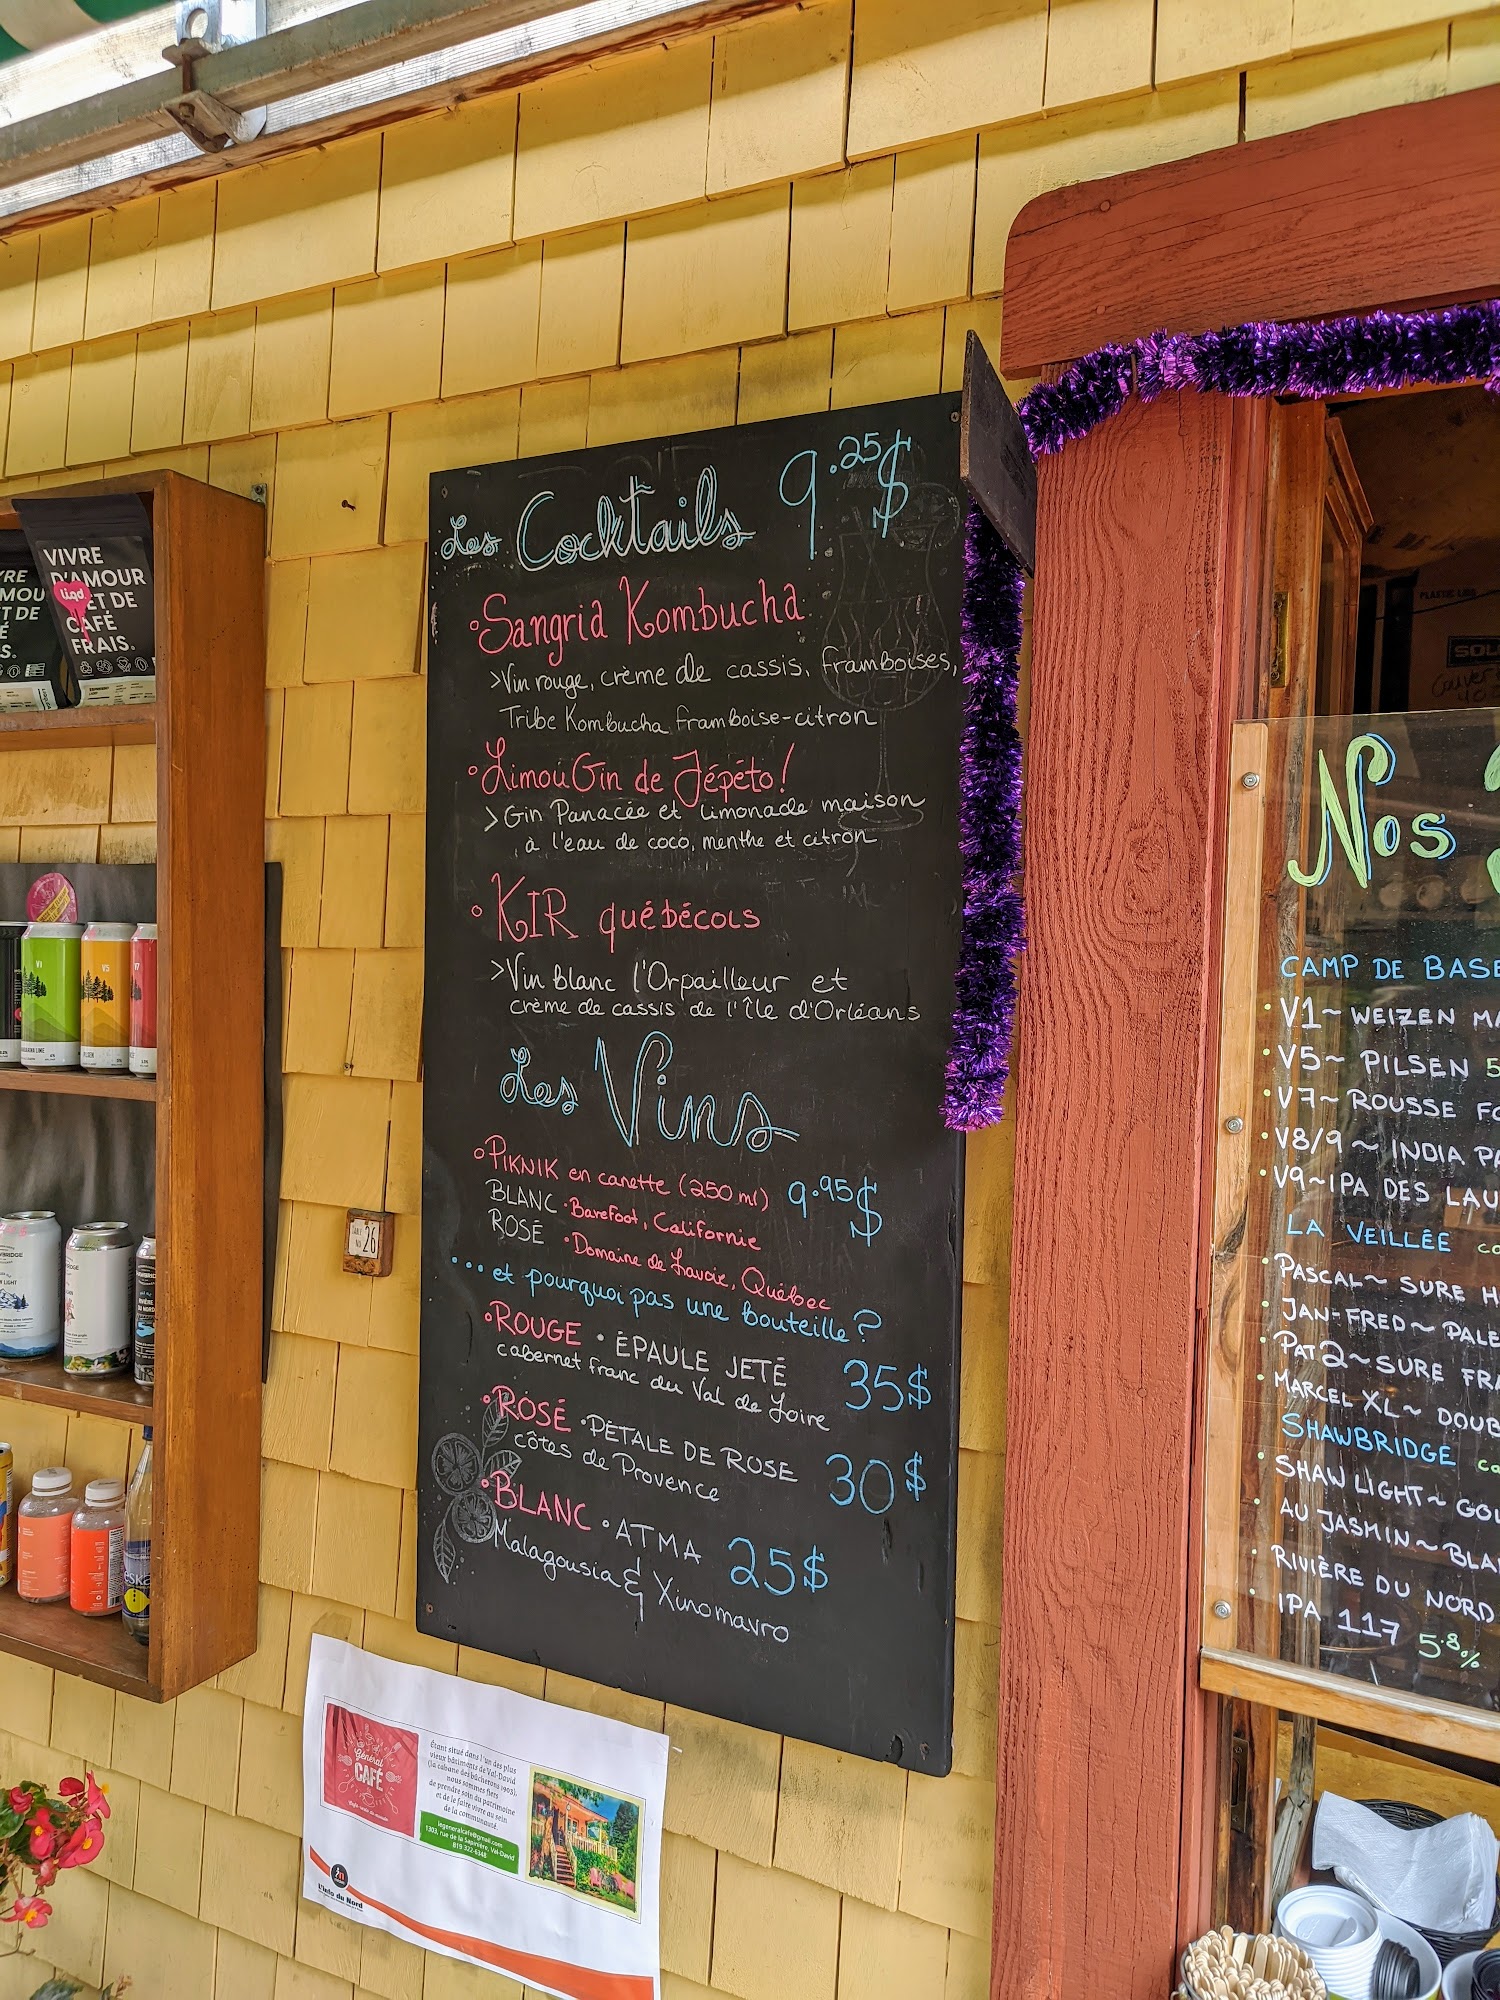 Les Cocktails 9.25$
Sangria Kombucha
>Vin rouge, crème de cassis, framboises,
Tribe Kombucha framboise-citron
LimouGin de Jépéto!
>Gin Panacée et limonade maison
à l'eau de coco, menthe et citron
KIR québécois
>Vin blanc l'Orpailleur et
crème de cassis de l'Île d'Orléans
Les Vins
PIKNIK en canette (250 ml) 9.95$
BLANC • Barefoot, Californie
ROSÉ • Domaine de Lavoie, Québec
... et pourquoi pas une bouteille?
• ROUGE • ÉPAULE JETÉ 35$
cabernet franc du Val de Loire
• ROSÉ • PÉTALE DE ROSE 30$
côtes de Provence
• BLANC • ATMA 25$
Malagousia & Xinomavro
VIVRE
D'AMOUR
ET DE
CAFÉ
FRAIS.
liqd
V5
26
Général
CAFÉ
Étant situé dans l'un des plus
vieux bâtiments de Val-David
(la cabane des bûcherons 1902),
nous sommes fiers
de prendre soin du patrimoine
et de le faire vivre au sein
de la communauté.
legeneralcafe@gmail.com
1303, rue de la Sapinière, Val-David
819 322-6348
L'info du Nord
Nos
CAMP DE BASE
• V1~ WEIZEN
• V5~ PILSEN 5
• V7~ ROUSSE
• V8/9 ~ INDIA
• V9~IPA DES
LA VEILLÉE
• PASCAL~ SURE
• JAN-FRED~ PALE
• PAT 2~SURE
• MARCEL XL~
SHAWBRIDGE
• SHAW LIGHT~
• AU JASMIN~
• RIVIÈRE DU NORD
• IPA 117 5.8%